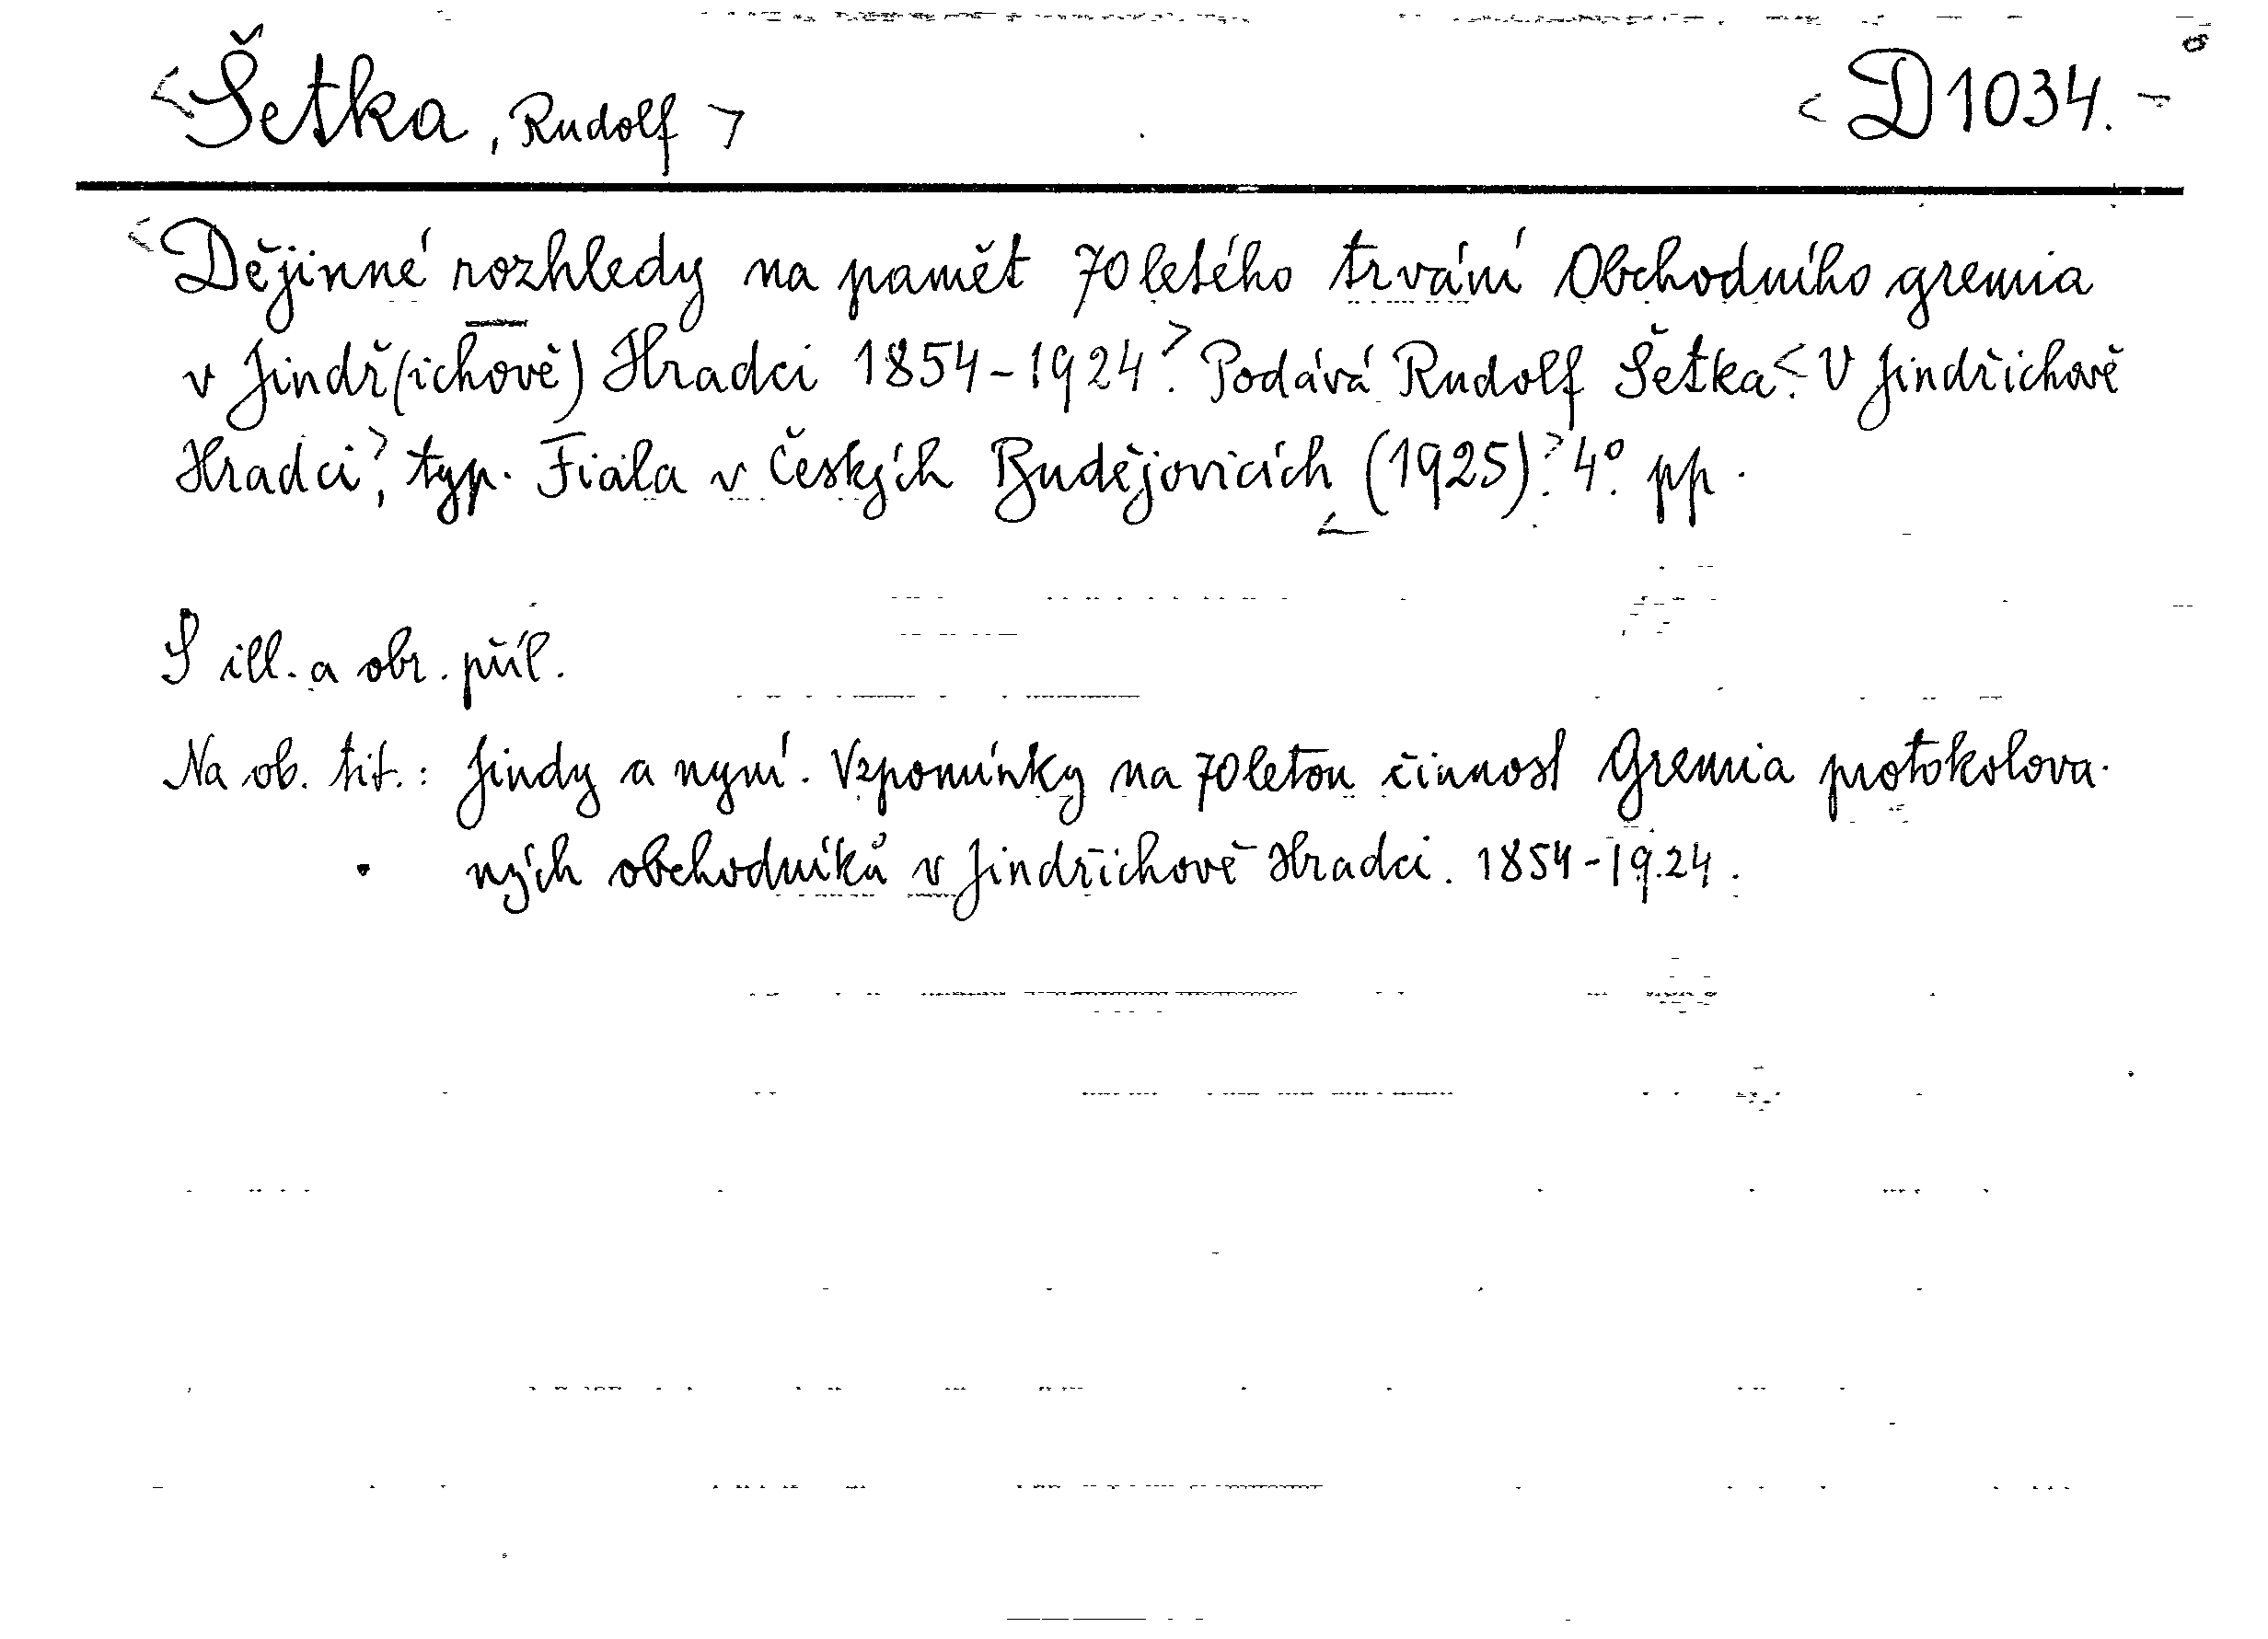 <Šetka, Rudolf> <D 1034.-
<Dějinné rozhledy na pamět 70letého trvání Obchodního gremia
v Jindř(ichově) Hradci 1854-1924.> Podává Rudolf Šetka.< V Jindřichově
Hradci>, typ. Fiala v Českých Budějovicích <(1925).> 4°. pp.
S ill. a obr. příl.
Na ob. tit.: Jindy a nyní. Vzpomínky na 70letou činnost Gremia protokolova-
ných obchodníků v Jindřichově Hradci. 1854-1924.